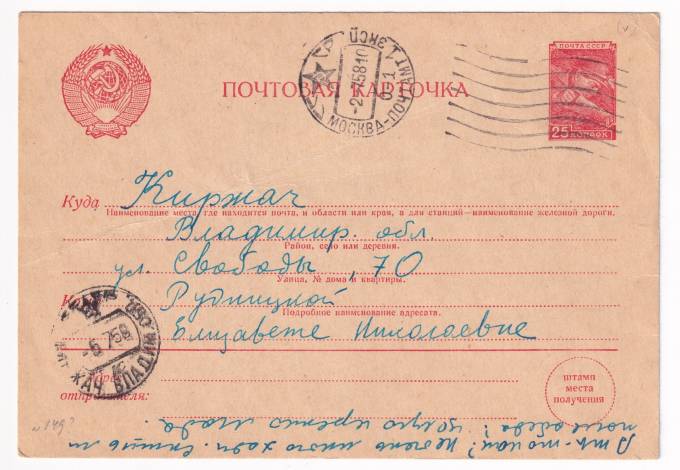 ПОЧТА СССР
25 КОПЕЕК
ПОЧТОВАЯ КАРТОЧКА
МОСКВА-ПОЧТАМТ
Куда Киржач
Наименование места, где находится почта, и области или края, а для станций—наименование железной дороги.
Владимир. обл.
Район, село или деревня.
ул. Свободы, 70
Улица, № дома и квартиры.
Рудницкой
Подробное наименование адресата.
Елизавете Николаевне
отправителя:
штамп
места
получения
много ходи.
после обеда? Целую крепко